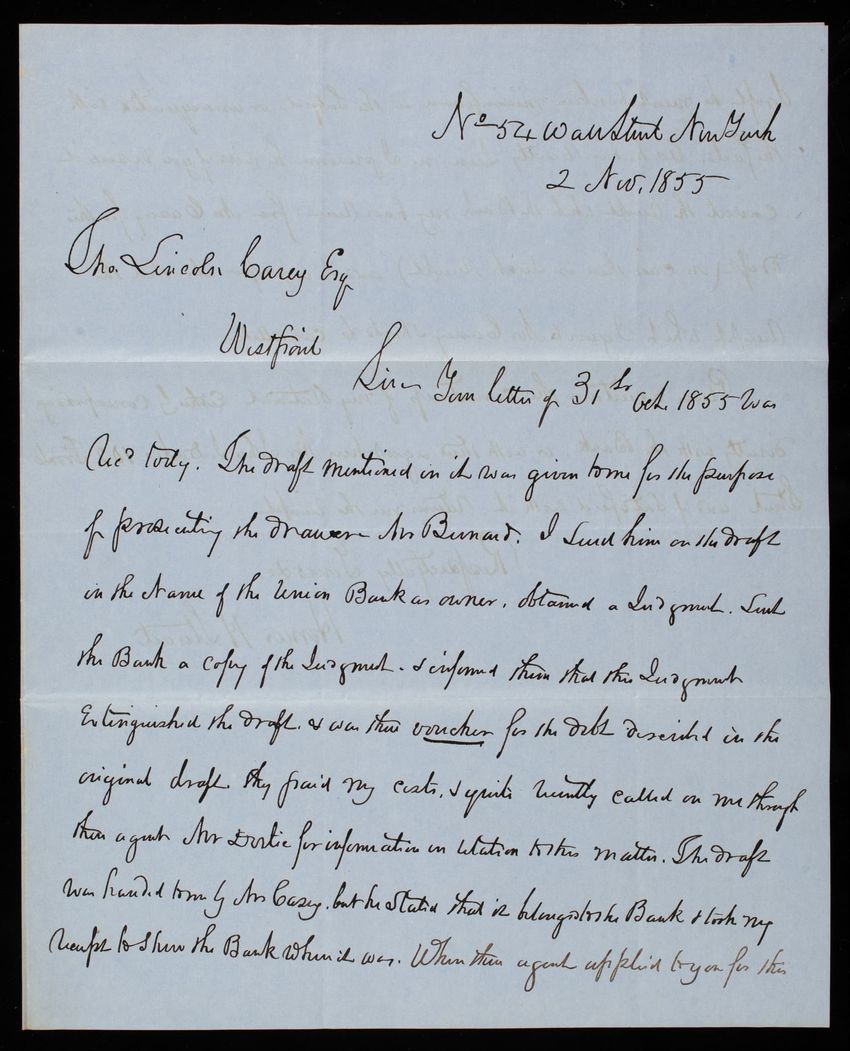 No 54 Wall Street New York
2 Nov, 1855
Tho. Lincoln Casey Esq
Westpoint
Sir Your letter of 31st Oct. 1855 was
Rec'd today. The draft mentioned in it was given to me for the purpose
of prosecuting the drawer Mr Burnard. I sued him on the draft
in the Name of the Union Bank as owner, obtained a Judgment. Sent
the Bank a copy of the Judgment. & informed them that this Judgment
Extinguished the draft. & was their voucher for the debt described in the
original draft they paid my costs, & quite recently called on me through
their agent Mr for information in relation to this matter. The draft
was handed to me by Mr Casey. but he stated that it belonged to the Bank & took my
receipt to show the Bank where it was. When their agent applied to you for this